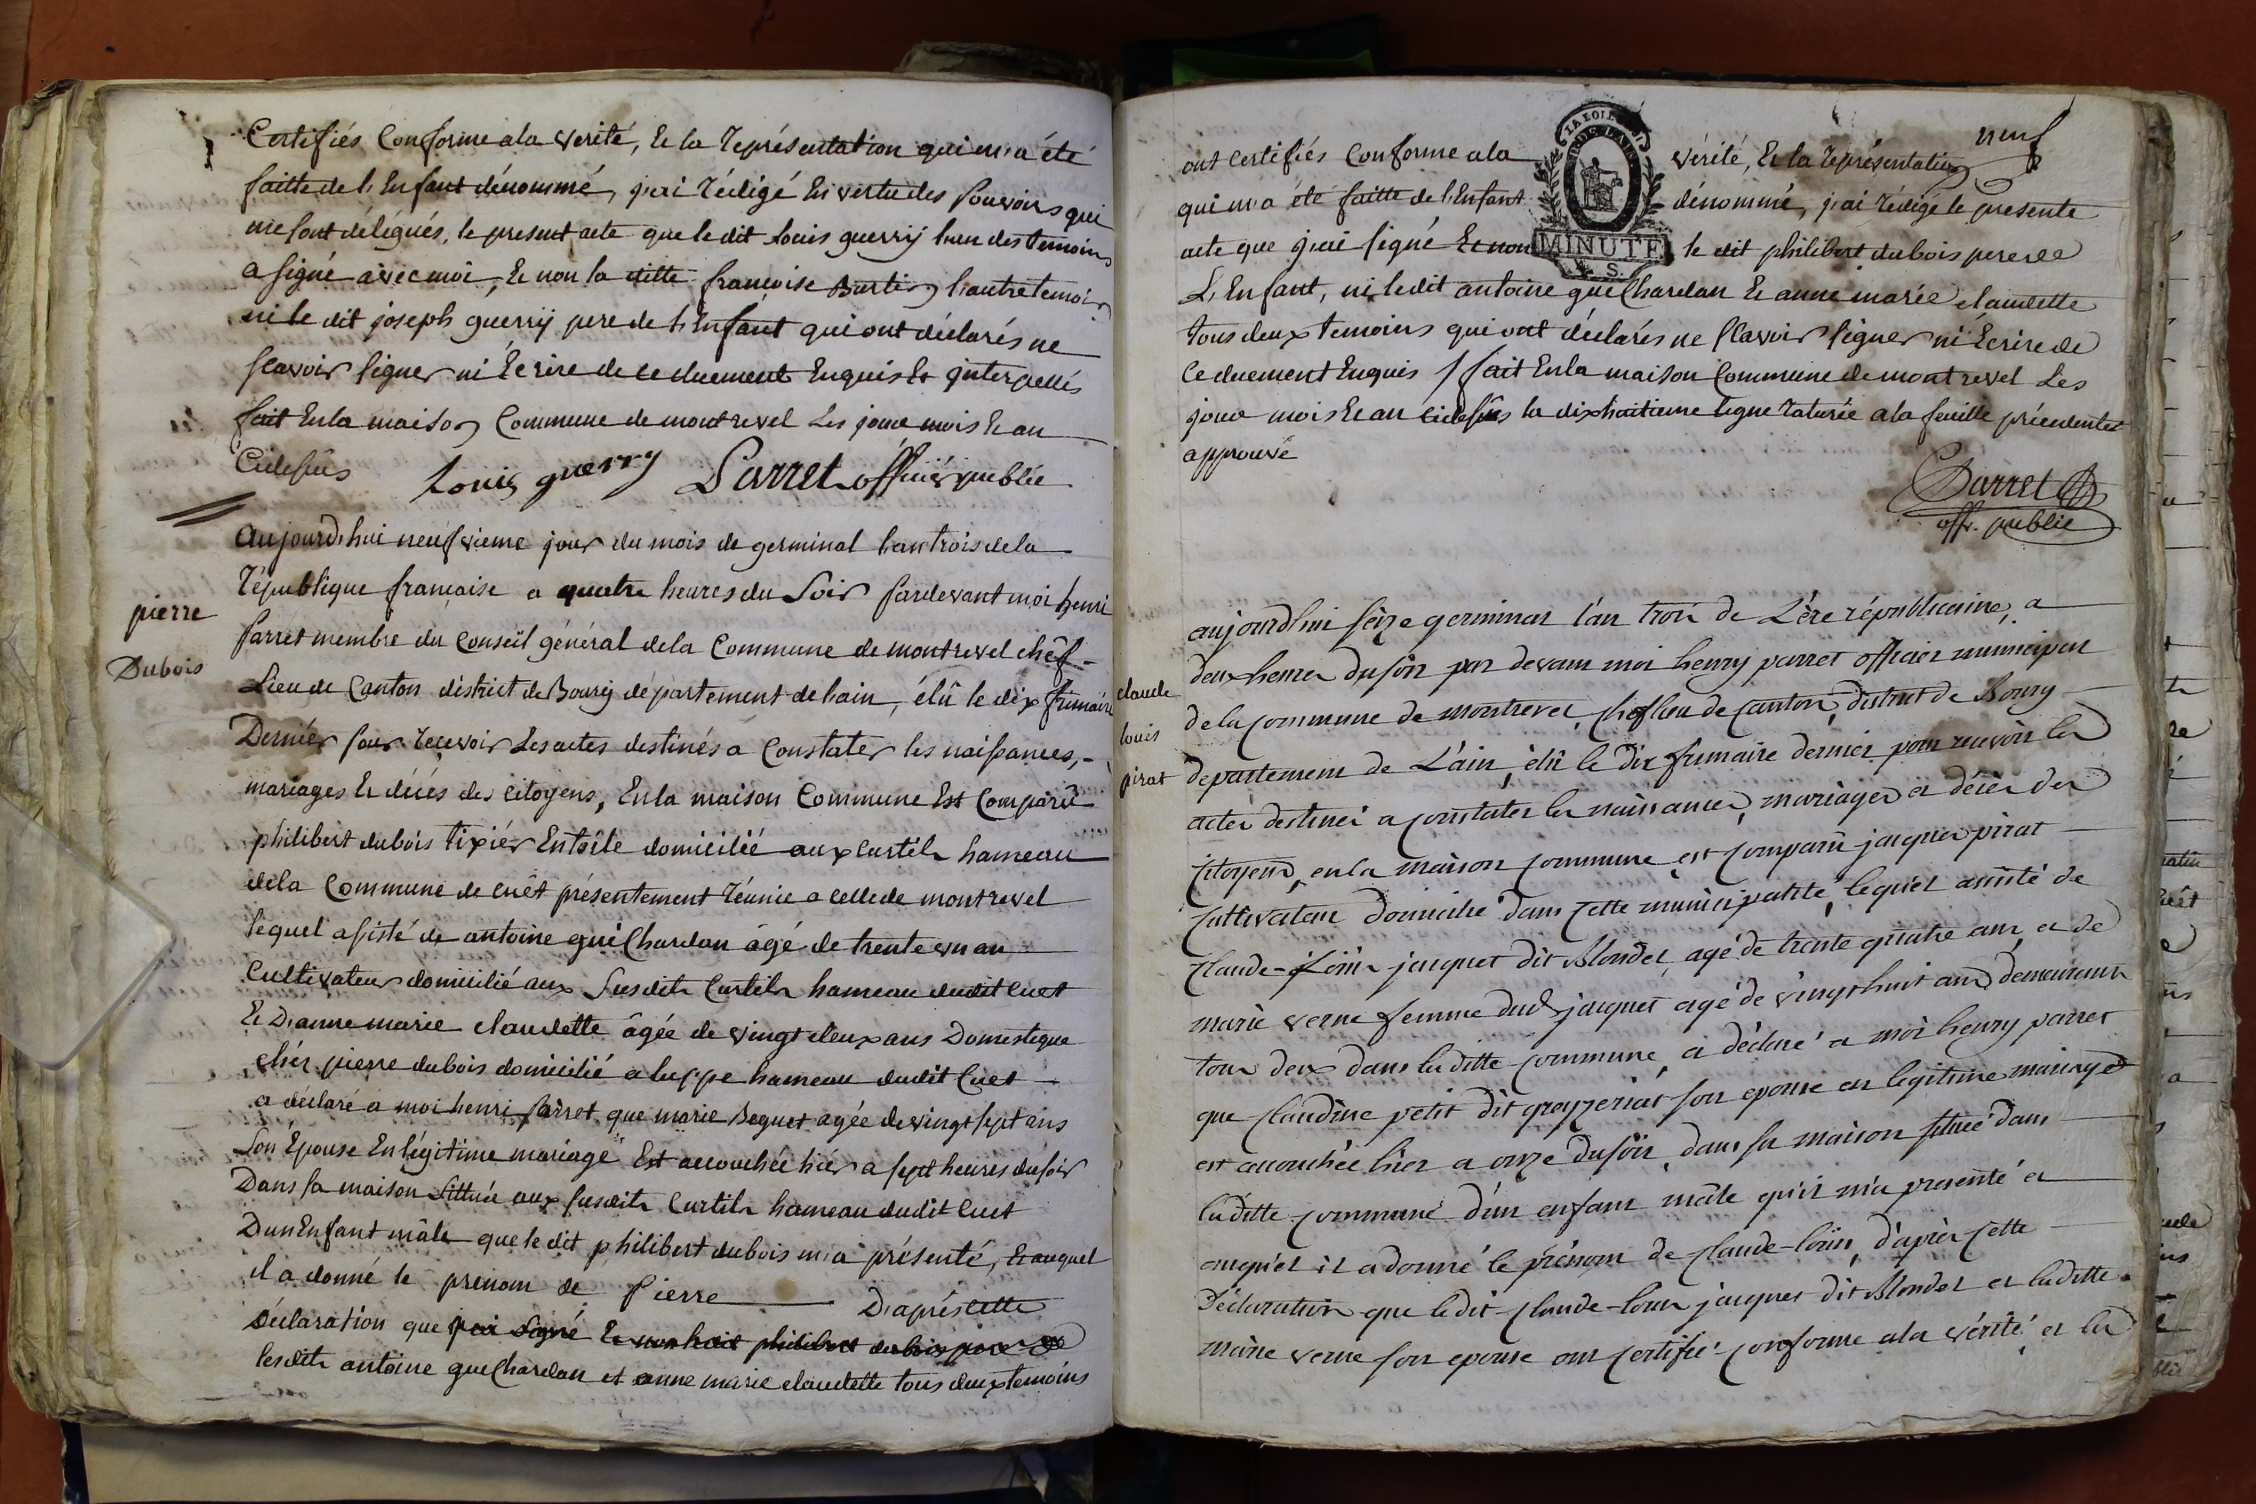 Certifiés Conforme a la verité, Et la représentation qui m'a été
faitte de l'Enfant dénommé, j'ai rédigé En vertu des pouvoirs qui
me sont délégués, le present acte que le dit Louis guerry l'un des temoins
a signé avec moi, Et non la ditte françoise Burtin l'autre temoin
ni le dit joseph guerry pere de l'Enfant qui ont déclarés ne
sçavoir signer ni Ecrire de ce duement Enquis Et interpellés
fait En la maison Commune de montrevel Les jour mois Et an
Cidesus Louis guerry Parret officier public
Aujourd'hui neufvieme jour du mois de germinal l'an trois de la
république française a quatre heures du Soir pardevant moi henri
parret membre du Conseil général de la Commune de montrevel chêf-
pierre
Dubois
Lieu de Canton district de Bourg département de lain, élû le dix frimaire
Dernier pour recevoir Les actes destinés a Constater les naissances,-
mariages Et décés des citoyens, En la maison Commune Est Comparû
philibert dubois tixiér En toile domicilié aux curtils hameau
de la Commune de cuêt présentement réunie a celle de montrevel
lequel assisté de antoine guiChardan âgé de trente un an
Cultivateur domicilié aux Susdits Curtils hameau dudit cuet
Et D'anne marie claudette âgée de vingt deux ans Domestique
chés pierre dubois domicilié a luppe hameau dudit Cuet
a déclaré a moi henri parret que marie Beguet agée de vingt sept ans
Son Epouse En légitime mariage Est accouchée hiér a sept heures du soir
Dans sa maison Sittuée aux susdits Curtils hameau dudit Cuet
D'un Enfant mâle que le dit philibert dubois m'a présenté, Et auquel
il a donné le prenom de Pierre D'aprés cette
Déclaration que j'ai signé Et non ledit philibert dubois pere de
lesdits antoine guiChardan et anne marie claudette tous deux temoins
neuf
ont certifiés Conforme a la vérité, Et la représentation
qui m'a été faitte de l'Enfant dénommé, j'ai rédigé le presente
acte que j'ai signé Et non le dit philibert dubois pere de
L'Enfant, ni le dit antoine guiChardan Et anne marie claudette
tous deux temoins qui ont déclarés ne sçavoir signer ni Ecrire de
Ce duement Enquis fait En la maison Commune de montrevel Les
jour mois Et an cidesus la dixhuitieme ligne raturée a la feuille précedente
approuvé
LA LOI
MINUTE
S.
Parret
off. public
aujourd'hui seize germinal l'an trois de L'ére républicaine, a
deux heures du soir par devant moi henry parret officier municipal
claude
louis
pirat
de la commune de montrevel, cheflieu de canton, district de Bourg
departement de L'ain, élû le dix frimaire dernier pour recevoir les
actes destinés a constater les naissances, mariages et décès des
citoyens, en la maison commune est comparû jacques pirat
cultivateur domicilié dans cette municipalité, lequel assisté de
claude-Louis jacquet dit Blondel agé de trente quatre ans, et de
marie verne femme dud. jacquet agé de vingt huit ans demeurant
tous deux dans la ditte commune, a déclaré a moi henry parret
que Claudine petit dit greyzeriat son epouse en legitime mariage
est accouchée hier a onze du soir, dans sa maison située dans
la ditte commune d'un enfant mâle qu'il m'a presenté et
auquel il a donné le prénom de claude-louis, d'après cette
Déclaration que ledit claude-louis jacquet dit Blondel et la ditte
marie verne son epouse ont certifié conforme a la vérité et la